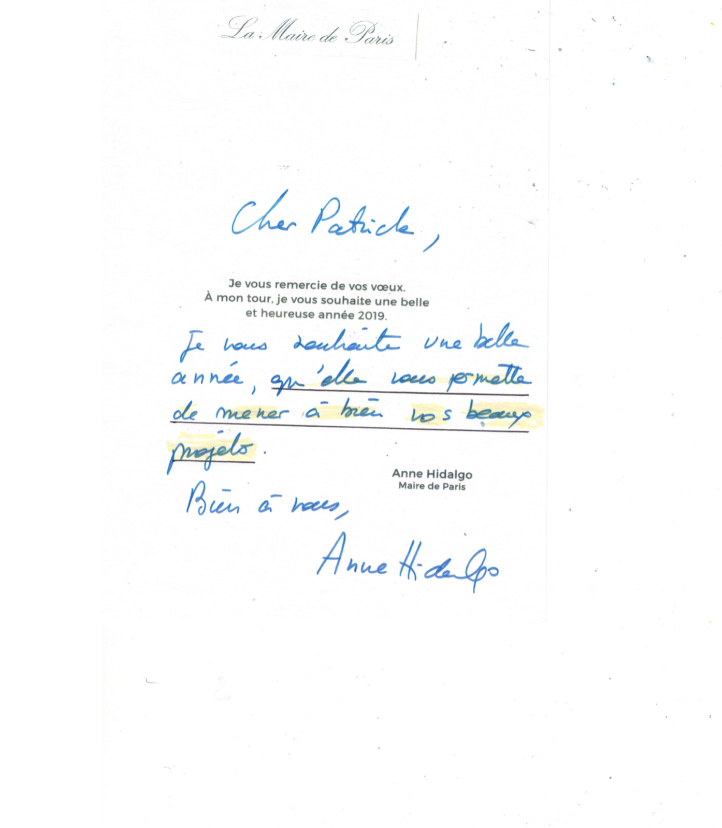 La Maire de Paris
Cher Patrick,
Je vous remercie de vos vœux.
À mon tour, je vous souhaite une belle
et heureuse année 2019.
Je vous souhaite une belle
année, qu'elle vous permette
de mener à bien vos beaux
projets.
Anne Hidalgo
Maire de Paris
Bien à vous,
Anne Hidalgo